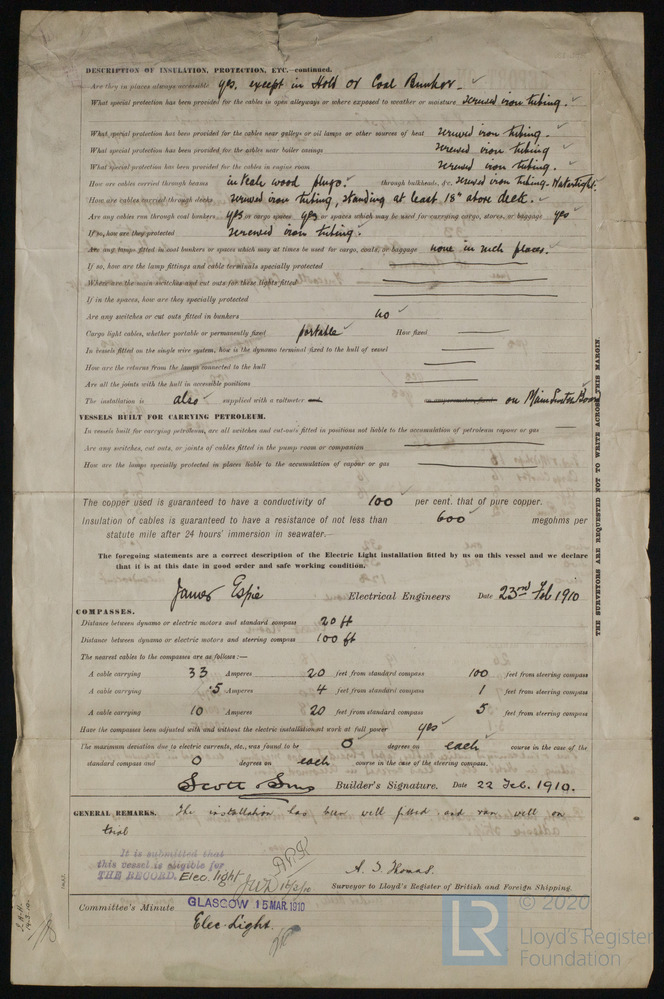 DESCRIPTION OF INSULATION, PROTECTION, ETC.—continued.
Are they in places always accessible yes, except in Hold or Coal Bunker.
What special protection has been provided for the cables in open alleyways or where exposed to weather or moisture screwed iron tubing.
What special protection has been provided for the cables near galleys or oil lamps or other sources of heat screwed iron tubing.
What special protection has been provided for the cables near boiler casings screwed iron tubing
What special protection has been provided for the cables in engine room screwed iron tubing.
How are cables carried through beams in teak wood plugs. through bulkheads, &c. screwed iron tubing. Watertight.
How are cables carried through decks screwed iron tubing, standing at least 18" above deck.
Are any cables run through coal bunkers yes or cargo spaces yes or spaces which may be used for carrying cargo, stores, or baggage yes
If so, how are they protected screwed iron tubing.
Are any lamps fitted in coal bunkers or spaces which may at times be used for cargo, coals, or baggage none in such places.
If so, how are the lamp fittings and cable terminals specially protected
Where are the main switches and cut outs for these lights fitted
If in the spaces, how are they specially protected
Are any switches or cut outs fitted in bunkers no
Cargo light cables, whether portable or permanently fixed portable How fixed
In vessels fitted on the single wire system, how is the dynamo terminal fixed to the hull of vessel
How are the returns from the lamps connected to the hull
Are all the joints with the hull in accessible positions
The installation is also supplied with a voltmeter on Main Switch Board
VESSELS BUILT FOR CARRYING PETROLEUM.
In vessels built for carrying petroleum, are all switches and cut-outs fitted in positions not liable to the accumulation of petroleum vapour or gas
Are any switches, cut outs, or joints of cables fitted in the pump room or companion
How are the lamps specially protected in places liable to the accumulation of vapour or gas
The copper used is guaranteed to have a conductivity of 100 per cent. that of pure copper.
Insulation of cables is guaranteed to have a resistance of not less than 600 megohms per
statute mile after 24 hours' immersion in seawater.
The foregoing statements are a correct description of the Electric Light installation fitted by us on this vessel and we declare
that it is at this date in good order and safe working condition.
James Espie Electrical Engineers Date 23rd Feb 1910
COMPASSES.
Distance between dynamo or electric motors and standard compass 20 ft
Distance between dynamo or electric motors and steering compass 100 ft
The nearest cables to the compasses are as follows:—
A cable carrying 33 Amperes 20 feet from standard compass 100 feet from steering compass
A cable carrying .5 Amperes 4 feet from standard compass 1 feet from steering compass
A cable carrying 10 Amperes 20 feet from standard compass 5 feet from steering compass
Have the compasses been adjusted with and without the electric installation at work at full power yes
The maximum deviation due to electric currents, etc., was found to be 0 degrees on each course in the case of the
standard compass and 0 degrees on each course in the case of the steering compass.
Scott & Sons Builder's Signature. Date 22 Feb. 1910.
GENERAL REMARKS. The installation has been well fitted and ran well on
trial
It is submitted that
this vessel is eligible for
THE RECORD. Elec. light
JWD 16/3/10
A. J. Thomas.
Surveyor to Lloyd's Register of British and Foreign Shipping.
Committee's Minute GLASGOW 15 MAR. 1910
Elec. Light.
THE SURVEYORS ARE REQUESTED NOT TO WRITE ACROSS THIS MARGIN.
© 2020
LR
Lloyd's Register
Foundation